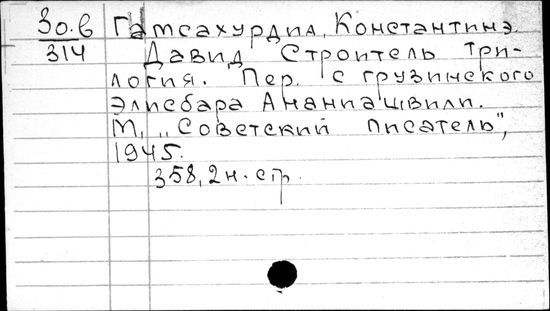 Зо.в Гамсахурдиа, Константинэ.
314 Давид Строитель три-
логия. Пер. с грузинского
Элисбара Ананиашвили.
М., „Советский писатель",
1945.
358, 2 н. стр.